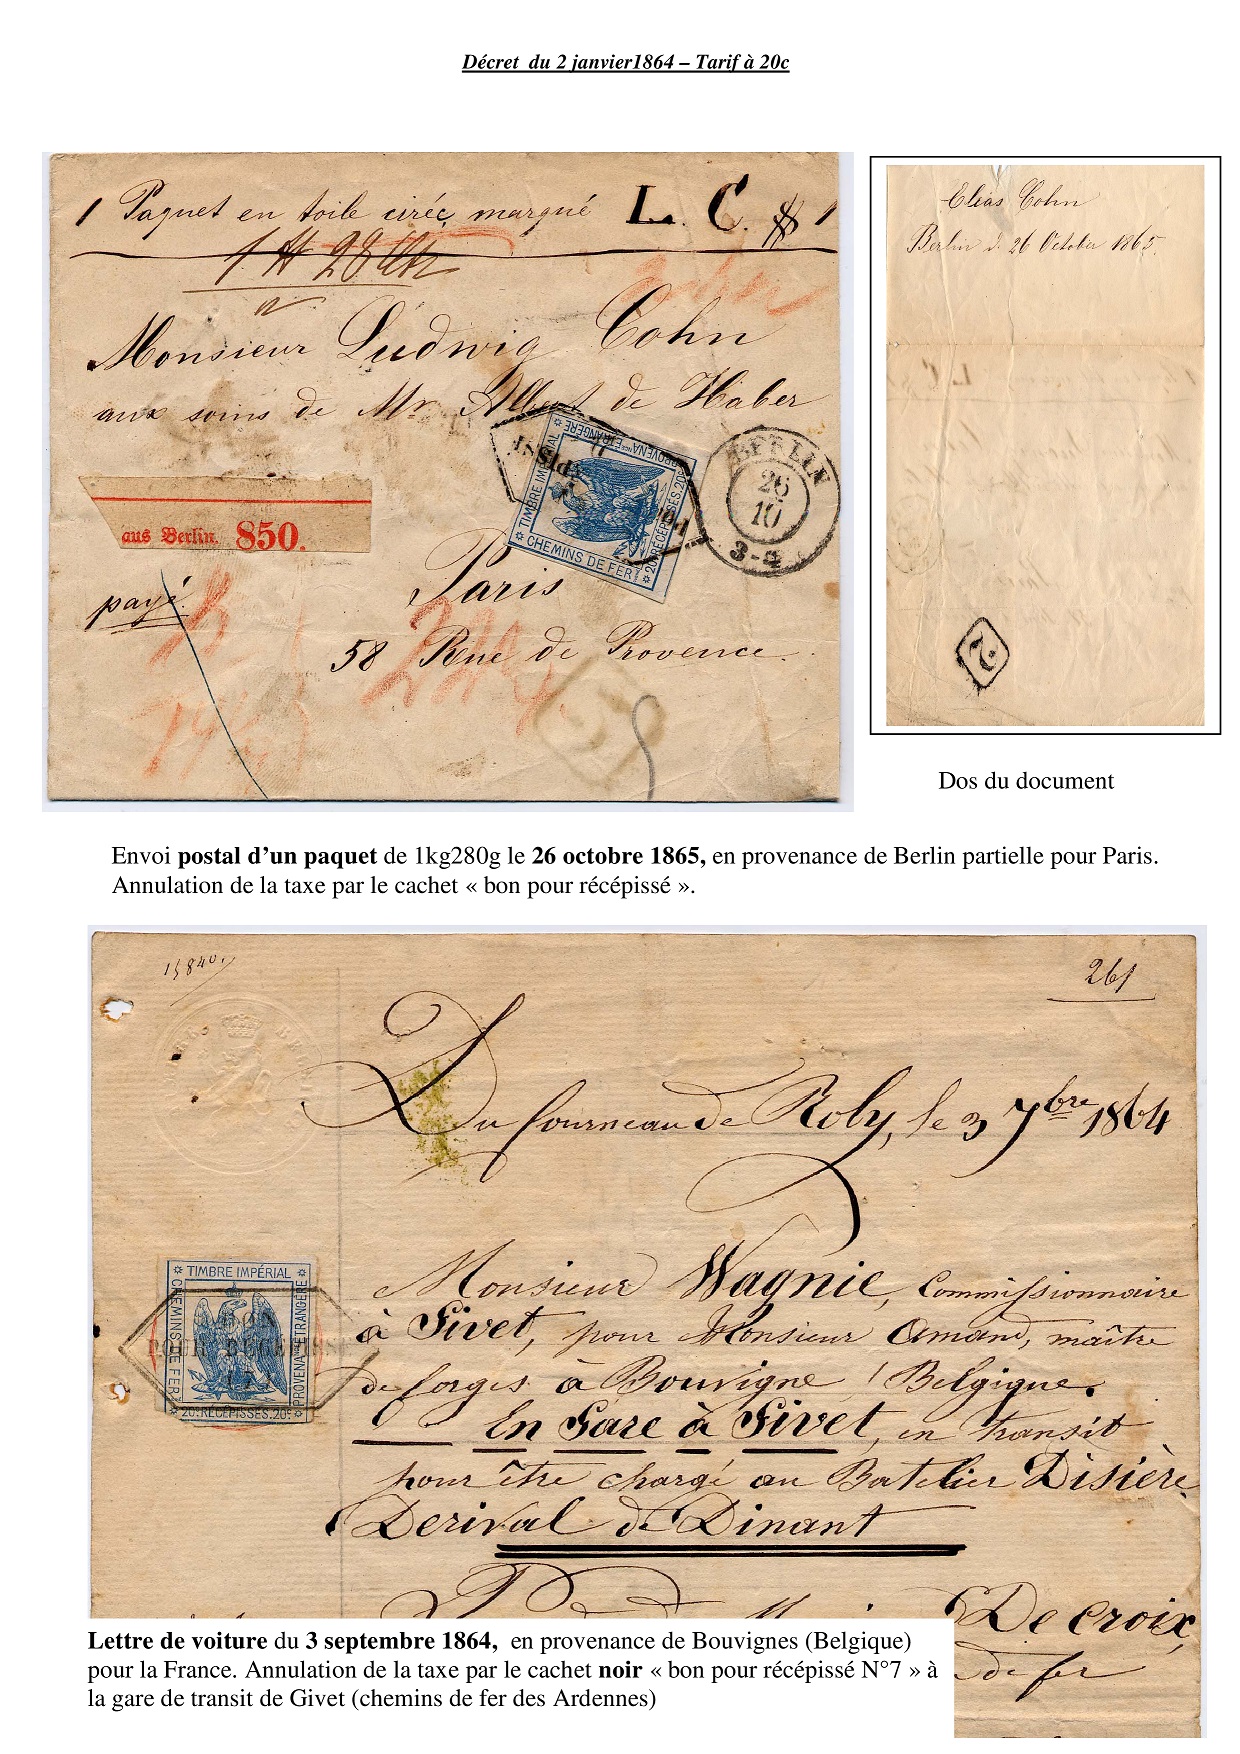 Décret du 2 janvier1864 – Tarif à 20c
1 Paquet en toile cirée marqué L. C. # 1
1 ₶ 28
Monsieur Ludwig Cohn
aux soins de Mr. Albert de Haber
TIMBRE IMPÉRIAL
PROVENANCE ÉTRANGÈRE
CHEMINS DE FER
20c RÉCÉPISSÉS. 20c
BERLIN
26
10
3-4
aus Berlin. 850.
Paris
payé
58 Rue de Provence.
Elias Cohn
Berlin d. 26 October 1865.
Dos du document
Envoi postal d’un paquet de 1kg280g le 26 octobre 1865, en provenance de Berlin partielle pour Paris.
Annulation de la taxe par le cachet « bon pour récépissé ».
15840
261
Du fourneau de Roly, le 3 7bre 1864
TIMBRE IMPÉRIAL
CHEMINS DE FER
PROVENANCE ÉTRANGÈRE
20c RÉCÉPISSÉS. 20c
BON
POUR RÉCÉPISSÉ
Monsieur Wagnie, Commissionnaire
à Givet, pour Monsieur Amand, maître
de forges à Bouvigne (Belgique.
En Gare à Givet, en transit
pour être chargé au Batelier Disière
Derival de Dinant
Decroix,
de fer
Lettre de voiture du 3 septembre 1864, en provenance de Bouvignes (Belgique)
pour la France. Annulation de la taxe par le cachet noir « bon pour récépissé N°7 » à
la gare de transit de Givet (chemins de fer des Ardennes)